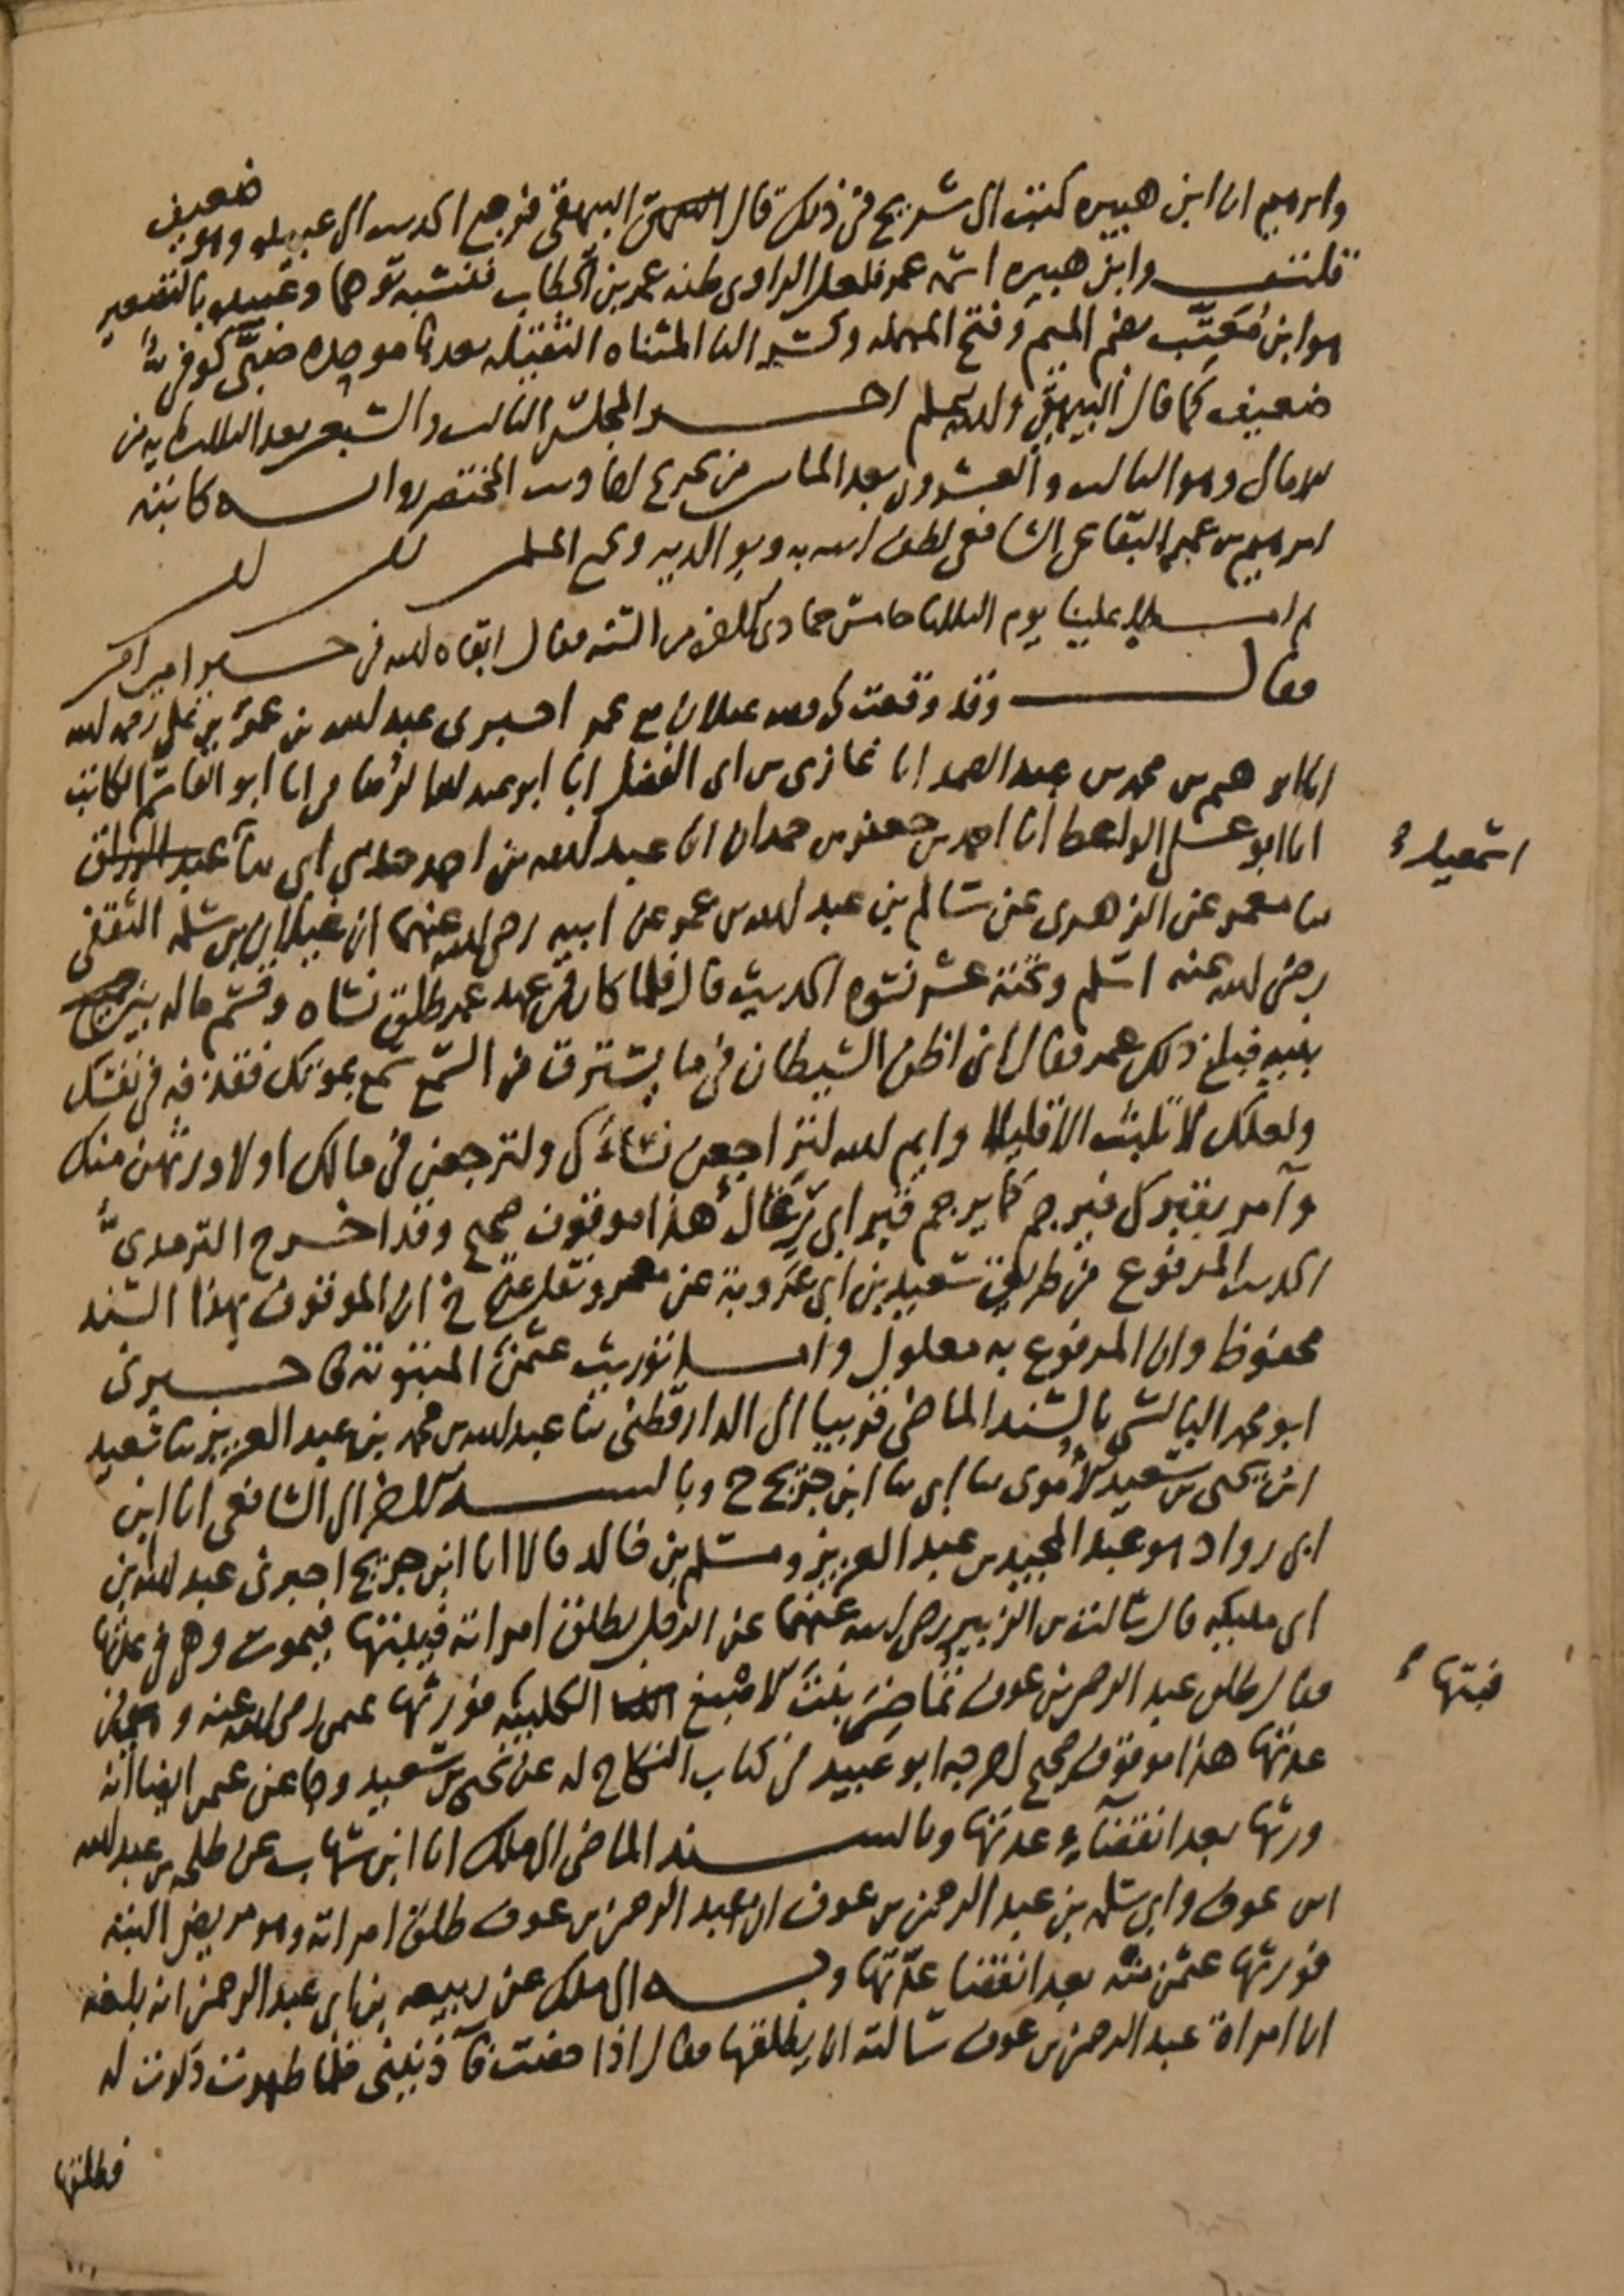 وابرهيم ان ابن هبيره كتب الى شريح في ذلك قال البيهقي فرجع الحديث الى عبيده وهو ضعيف
قلت وابن هبيره اسمه عمر فلعل الراوي ظنه عمر بن الخطاب فنسبه توهما وعبيده بالتصغير
هو ابن مُعَتِّب بضم الميم وفتح المهمله وكسر التا المثناه الثقيله بعدها موحده ضبّي كوفي
ضعيف كما قال البيهقي والله اعلم اخر المجلس الثالث والتسعين بعد الثلثمايه من
الامالي وهو الثالث والعشرون بعد الماس من تخريج احاديث المختصر رواية كاتبه
ابرهيم بن عمر البقاعي الشافعي لطف الله به وبوالديه وبجميع المسلمين
ثم املا علينا يوم الثلثا خامس جمادى من السنه فقال ابقاه الله في خير امين
فقال وقد وقعت لي قصه غيلان مع عمر اخبرني عبد الله بن عمر بن علي رحمه الله
انا ابرهيم بن محمد بن عبد الصمد انا غازي بن ابي الفضل انا ابو عبد الله الرصافي انا ابو القاسم الكاتب
انا ابو علي الواعظ انا احمد بن جعفر بن حمدان انا عبد الله بن احمد حدثني ابي ثنا عبد الرزاق
اسمعيل
ثنا معمر عن الزهري عن سالم بن عبد الله بن عمر عن ابيه رضي الله عنهما ان غيلان بن سلمه الثقفي
رضي الله عنه اسلم وتحته عشر نسوه الحديث قال فلما كان في عهد عمر طلق نساه وقسم ماله بين
بنيه فبلغ ذلك عمر فقال اني اظن الشيطان في ما يسترق من السمع سمع بموتك فقذفه في نفسك
ولعلك لا تلبث الا قليلا وايم الله لتراجعن نساءك ولترجعن في مالك او لاورثهن منك
وآمر بقبرك فيرجم كما يرجم قبر ابي رغال هذا موقوف صحيح وقد اخرج الترمذي
الحديث المرفوع من طريق سعيد بن ابي عروبة عن معمر ونقل عن خ ان الموقوف بهذا السند
محفوظ وان المرفوع به معلول واما توريث عثمن المبتوته فاخبرني
ابو محمد البالسي بالسند الماضي قريبا الى الدارقطني ثنا عبد الله بن محمد بن عبد العزيز ثنا سعيد
ابن يحيى بن سعيد الاموي ثنا ابي ثنا ابن جريج ح وبالسند الماضي الى الشافعي انا ابن
ابي رواد هو عبد المجيد بن عبد العزيز ومسلم بن خالد قالا انا ابن جريج اخبرني عبد الله بن
ابي مليكه قال سالت بن الزبير رضي الله عنهما عن الرجل يطلق امراته فيبتها فيموت وهي في عدتها
فبتها
فقال طلق عبد الرحمن بن عوف تماضر بنت الاصبغ الكلبيه فورثها عثمن رضي الله عنه وهي في
عدتها هذا موقوف صحيح اخرجه ابو عبيد في كتاب النكاح له عن يحيى بن سعيد وجا عن عثمن ايضا انه
ورثها بعد انقضآء عدتها وبالسند الماضي الى ملك انا ابن شهاب عن طلحه بن عبد الله
ابن عوف وابي سلمه بن عبد الرحمن بن عوف ان عبد الرحمن بن عوف طلق امراته وهو مريض البته
فورثها عثمن منه بعد انقضا عدتها وبه الى ملك عن ربيعه بن ابي عبد الرحمن انه بلغه
ان امراة عبد الرحمن بن عوف سالته ان يطلقها فقال اذا حضت فآذنيني فلما طهرت ذكرت له
فطلقها